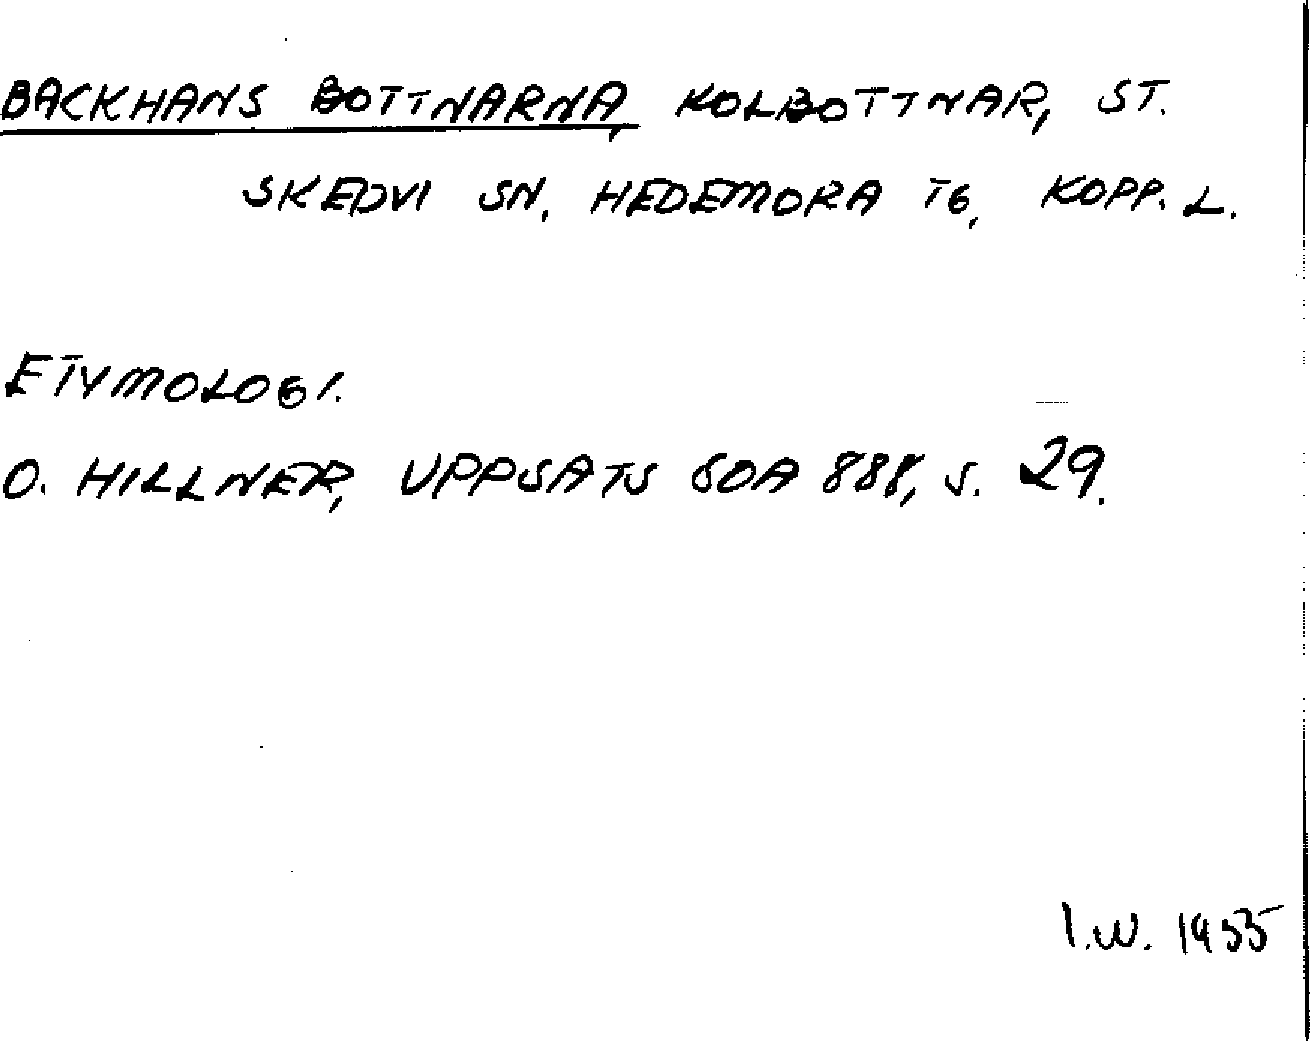 BACKHANS BOTTNARNA, KOLBOTTNAR, ST.
SKEDVI SN, HEDEMORA TG, KOPP. L.
ETYMOLOGI.
O. HILLNER, UPPSATS SOA 888, S. 29.
I.W. 1955